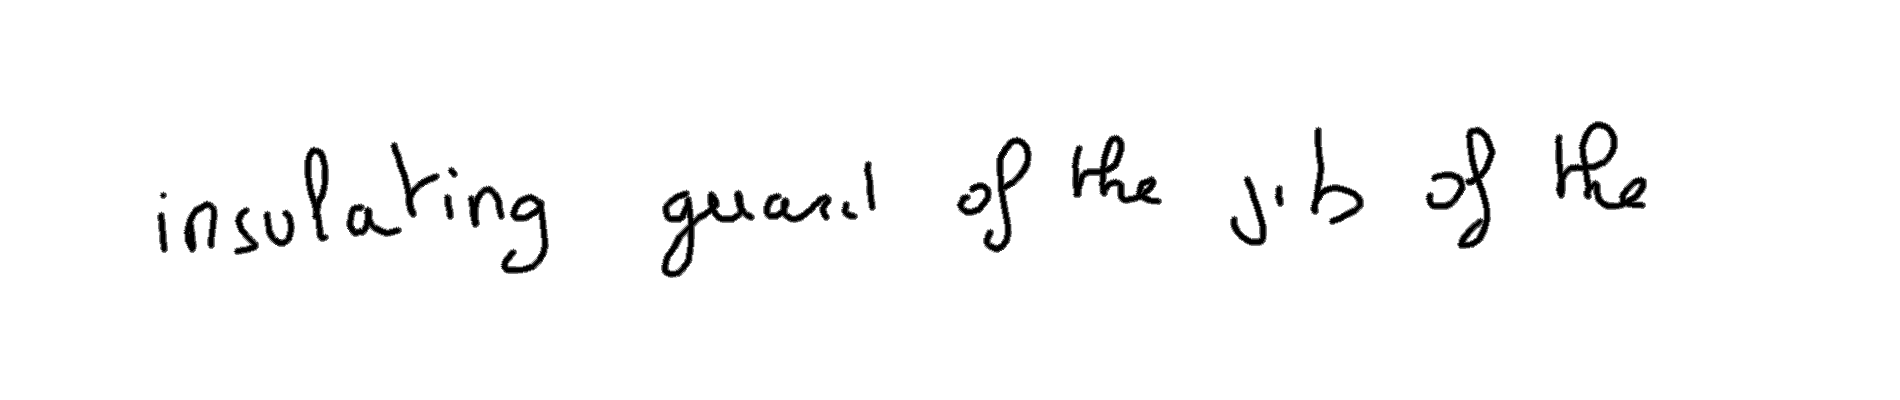 insulating guard of the jib of the